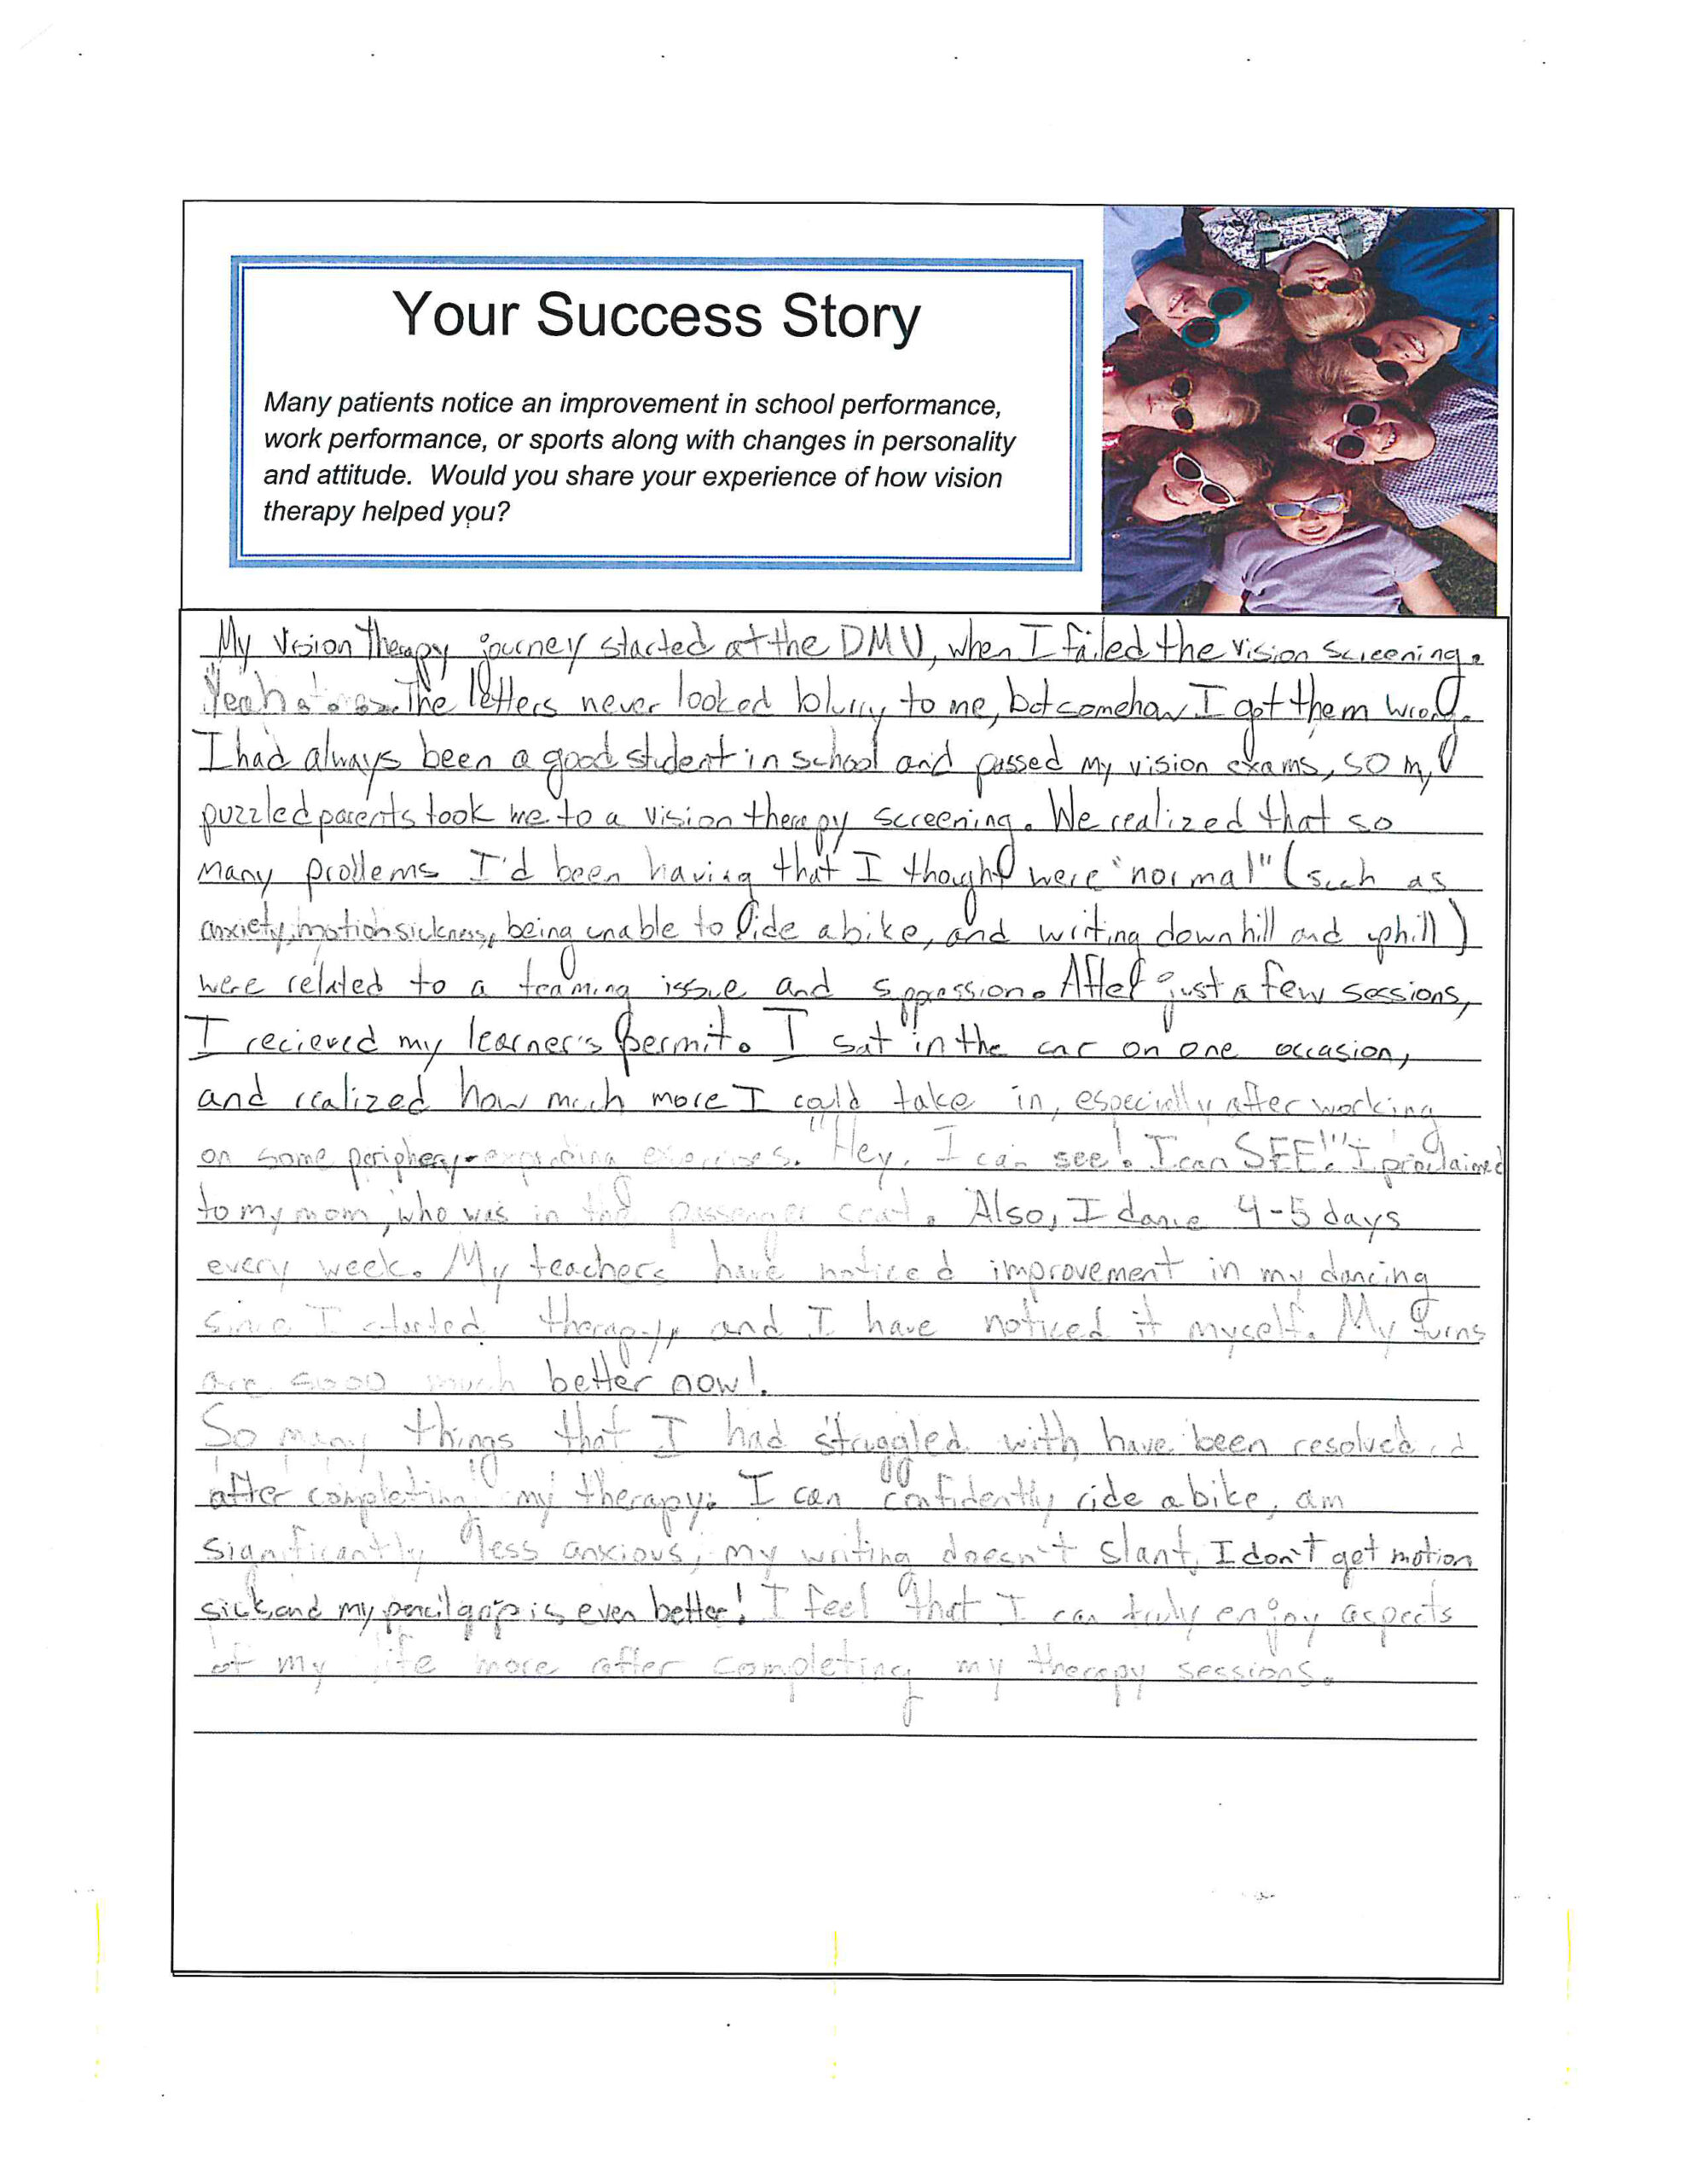 Your Success Story
Many patients notice an improvement in school performance,
work performance, or sports along with changes in personality
and attitude. Would you share your experience of how vision
therapy helped you?
My vision therapy journey started at the DMV, when I failed the vision screening.
Yeah... The letters never looked blurry to me, but somehow I got them wrong.
I had always been a good student in school and passed my vision exams, so my
puzzled parents took me to a vision therapy screening. We realized that so
many problems I'd been having that I thought were "normal" (such as
anxiety, motion sickness, being unable to ride a bike, and writing downhill and uphill)
were related to a teaming issue and suppression. After just a few sessions,
I recieved my learner's permit. I sat in the car on one occasion,
and realized how much more I could take in, especially after working
on some periphery-expanding exercises. "Hey, I can see! I can SEE!" I proclaimed
to my mom, who was in the passenger seat. Also, I dance 4-5 days
every week. My teachers have noticed improvement in my dancing
since I started therapy, and I have noticed it myself. My turns
are sooo much better now!
So many things that I had struggled with have been resolved
after completing my therapy. I can confidently ride a bike, am
significantly less anxious, my writing doesn't slant, I don't get motion
sick, and my pencil grip is even better! I feel that I can truly enjoy aspects
of my life more after completing my therapy sessions.